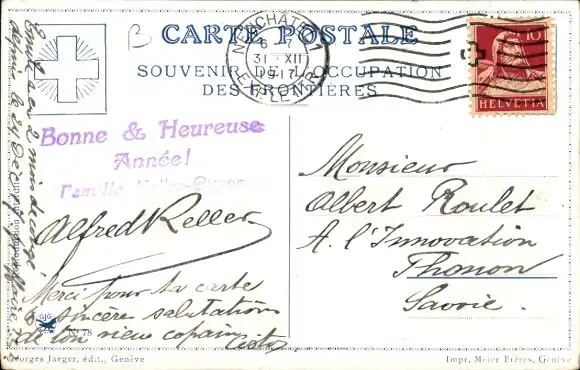 B
CARTE POSTALE
SOUVENIR DE L'OCCUPATION
DES FRONTIÈRES
NEUCHÂTEL 1
31. XII
HELVETIA
10
Bonne & Heureuse
Année!
Famille
Alfred Keller
Merci pour ta carte
& sincère salutations
de ton vieux copain
Monsieur
Albert Roulet
A. l'Innovation
Thonon
Savoie.
2 mois de congé
depuis le 24 Dec
GJG
No 78
Georges Jaeger, édit., Genève
Impr. Meier Frères, Genève